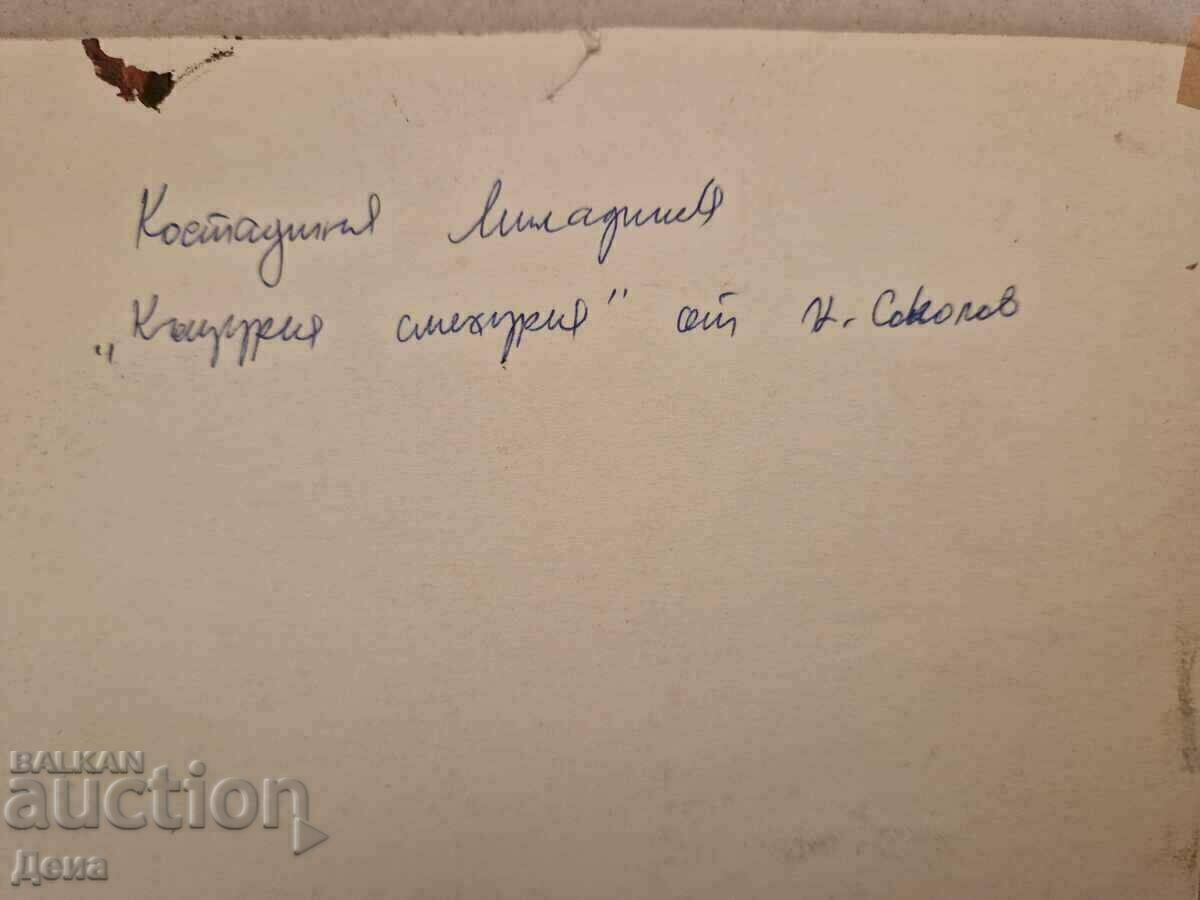 Костадинка Миладинова
„Къщурка смехурка" от К. Соколов
BALKAN
auction
Деиа